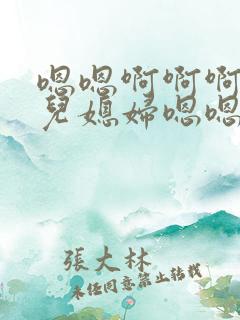 嗯嗯啊啊啊
兒媳婦嗯嗯
張大林
未任同意禁止转载